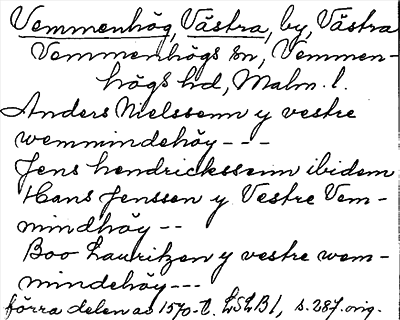 Vemmenhög, Västra, by, Västra
Vemmenhögs sn, Vemmen-
högs hd, Malm. l.
Anders Nielssenn y vestre
wemmindehöy - - -
Jens hendrickssenn ibidem
Hans Jenssen y Vestre Vem-
mindhöy - -
Boo Lauritzen y vestre wem-
mindehöy - - -
förra delen av 1570-t. LSLB1, s. 287. orig.